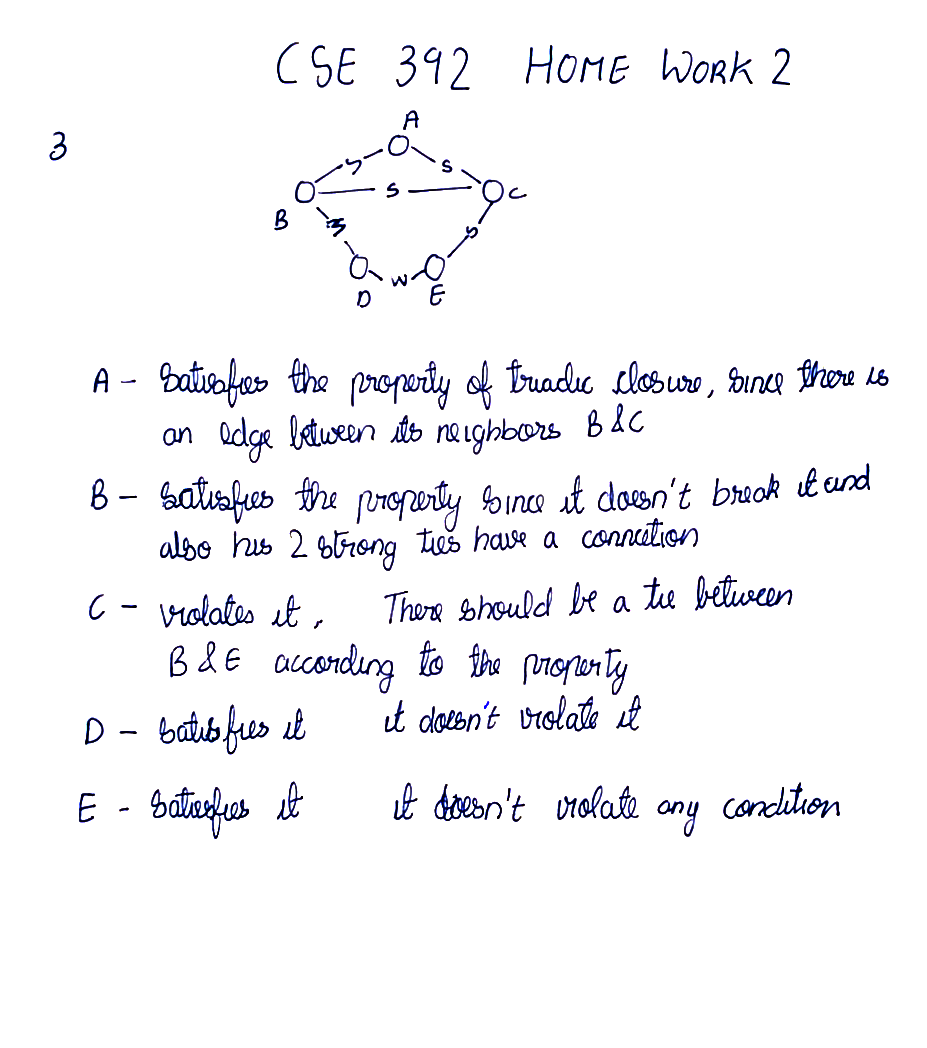 CSE 392 HOME WORK 2
3
A
S S
B S C
S
D W E
A - Satisfies the property of triadic closure, since there is
an edge between its neighbors B & C
B - Satisfies the property since it doesn't break it and
also his 2 strong ties have a connection
C - violates it. There should be a tie between
B & E according to the property
D - satisfies it it doesn't violate it
E - Satisfies it it doesn't violate any condition